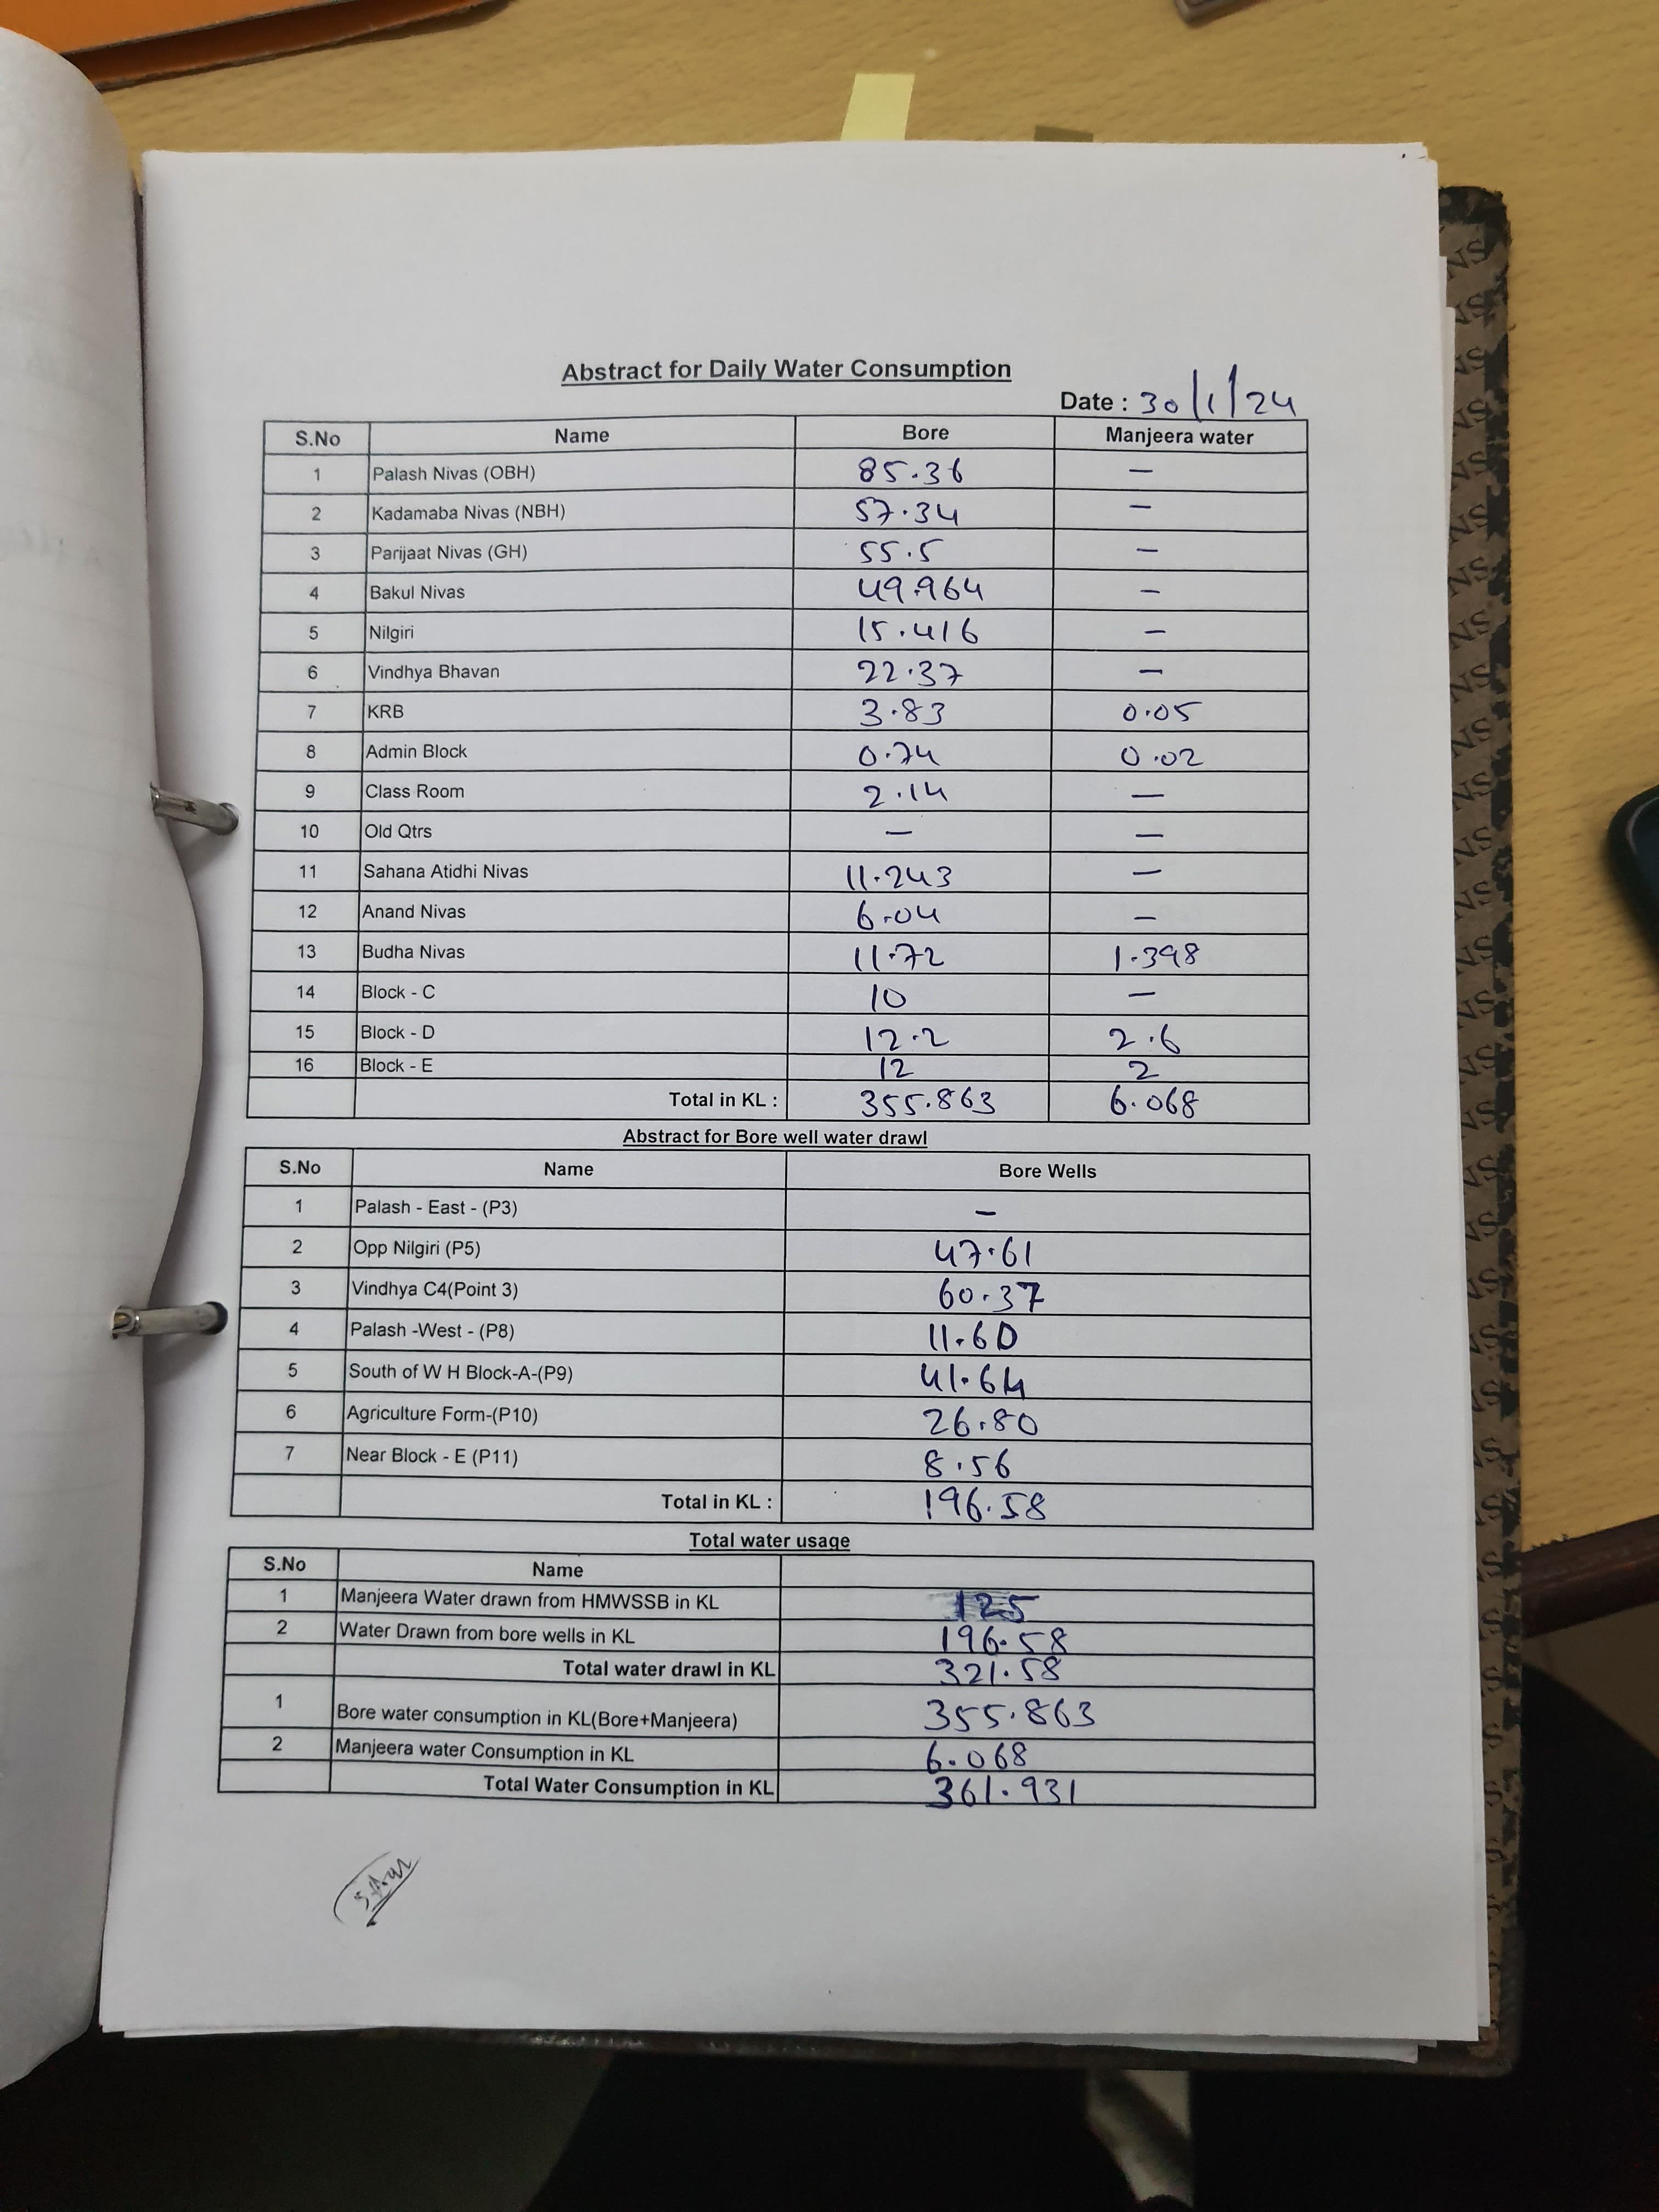 Abstract for Daily Water Consumption
Date : 30/1/24
S.No Name Bore Manjeera water
1 Palash Nivas (OBH) 85.36 —
2 Kadamaba Nivas (NBH) 57.34 —
3 Parijaat Nivas (GH) 55.5 —
4 Bakul Nivas 49.964 —
5 Nilgiri 15.416 —
6 Vindhya Bhavan 22.37 —
7 KRB 3.83 0.05
8 Admin Block 0.74 0.02
9 Class Room 2.14 —
10 Old Qtrs — —
11 Sahana Atidhi Nivas 11.243 —
12 Anand Nivas 6.04 —
13 Budha Nivas 11.72 1.398
14 Block - C 10 —
15 Block - D 12.2 2.6
16 Block - E 12 2
Total in KL : 355.863 6.068
Abstract for Bore well water drawl
S.No Name Bore Wells
1 Palash - East - (P3) —
2 Opp Nilgiri (P5) 47.61
3 Vindhya C4(Point 3) 60.37
4 Palash -West - (P8) 11.60
5 South of W H Block-A-(P9) 41.64
6 Agriculture Form-(P10) 26.80
7 Near Block - E (P11) 8.56
Total in KL : 196.58
Total water usage
S.No Name
1 Manjeera Water drawn from HMWSSB in KL 125
2 Water Drawn from bore wells in KL 196.58
Total water drawl in KL 321.58
1 Bore water consumption in KL(Bore+Manjeera) 355.863
2 Manjeera water Consumption in KL 6.068
Total Water Consumption in KL 361.931